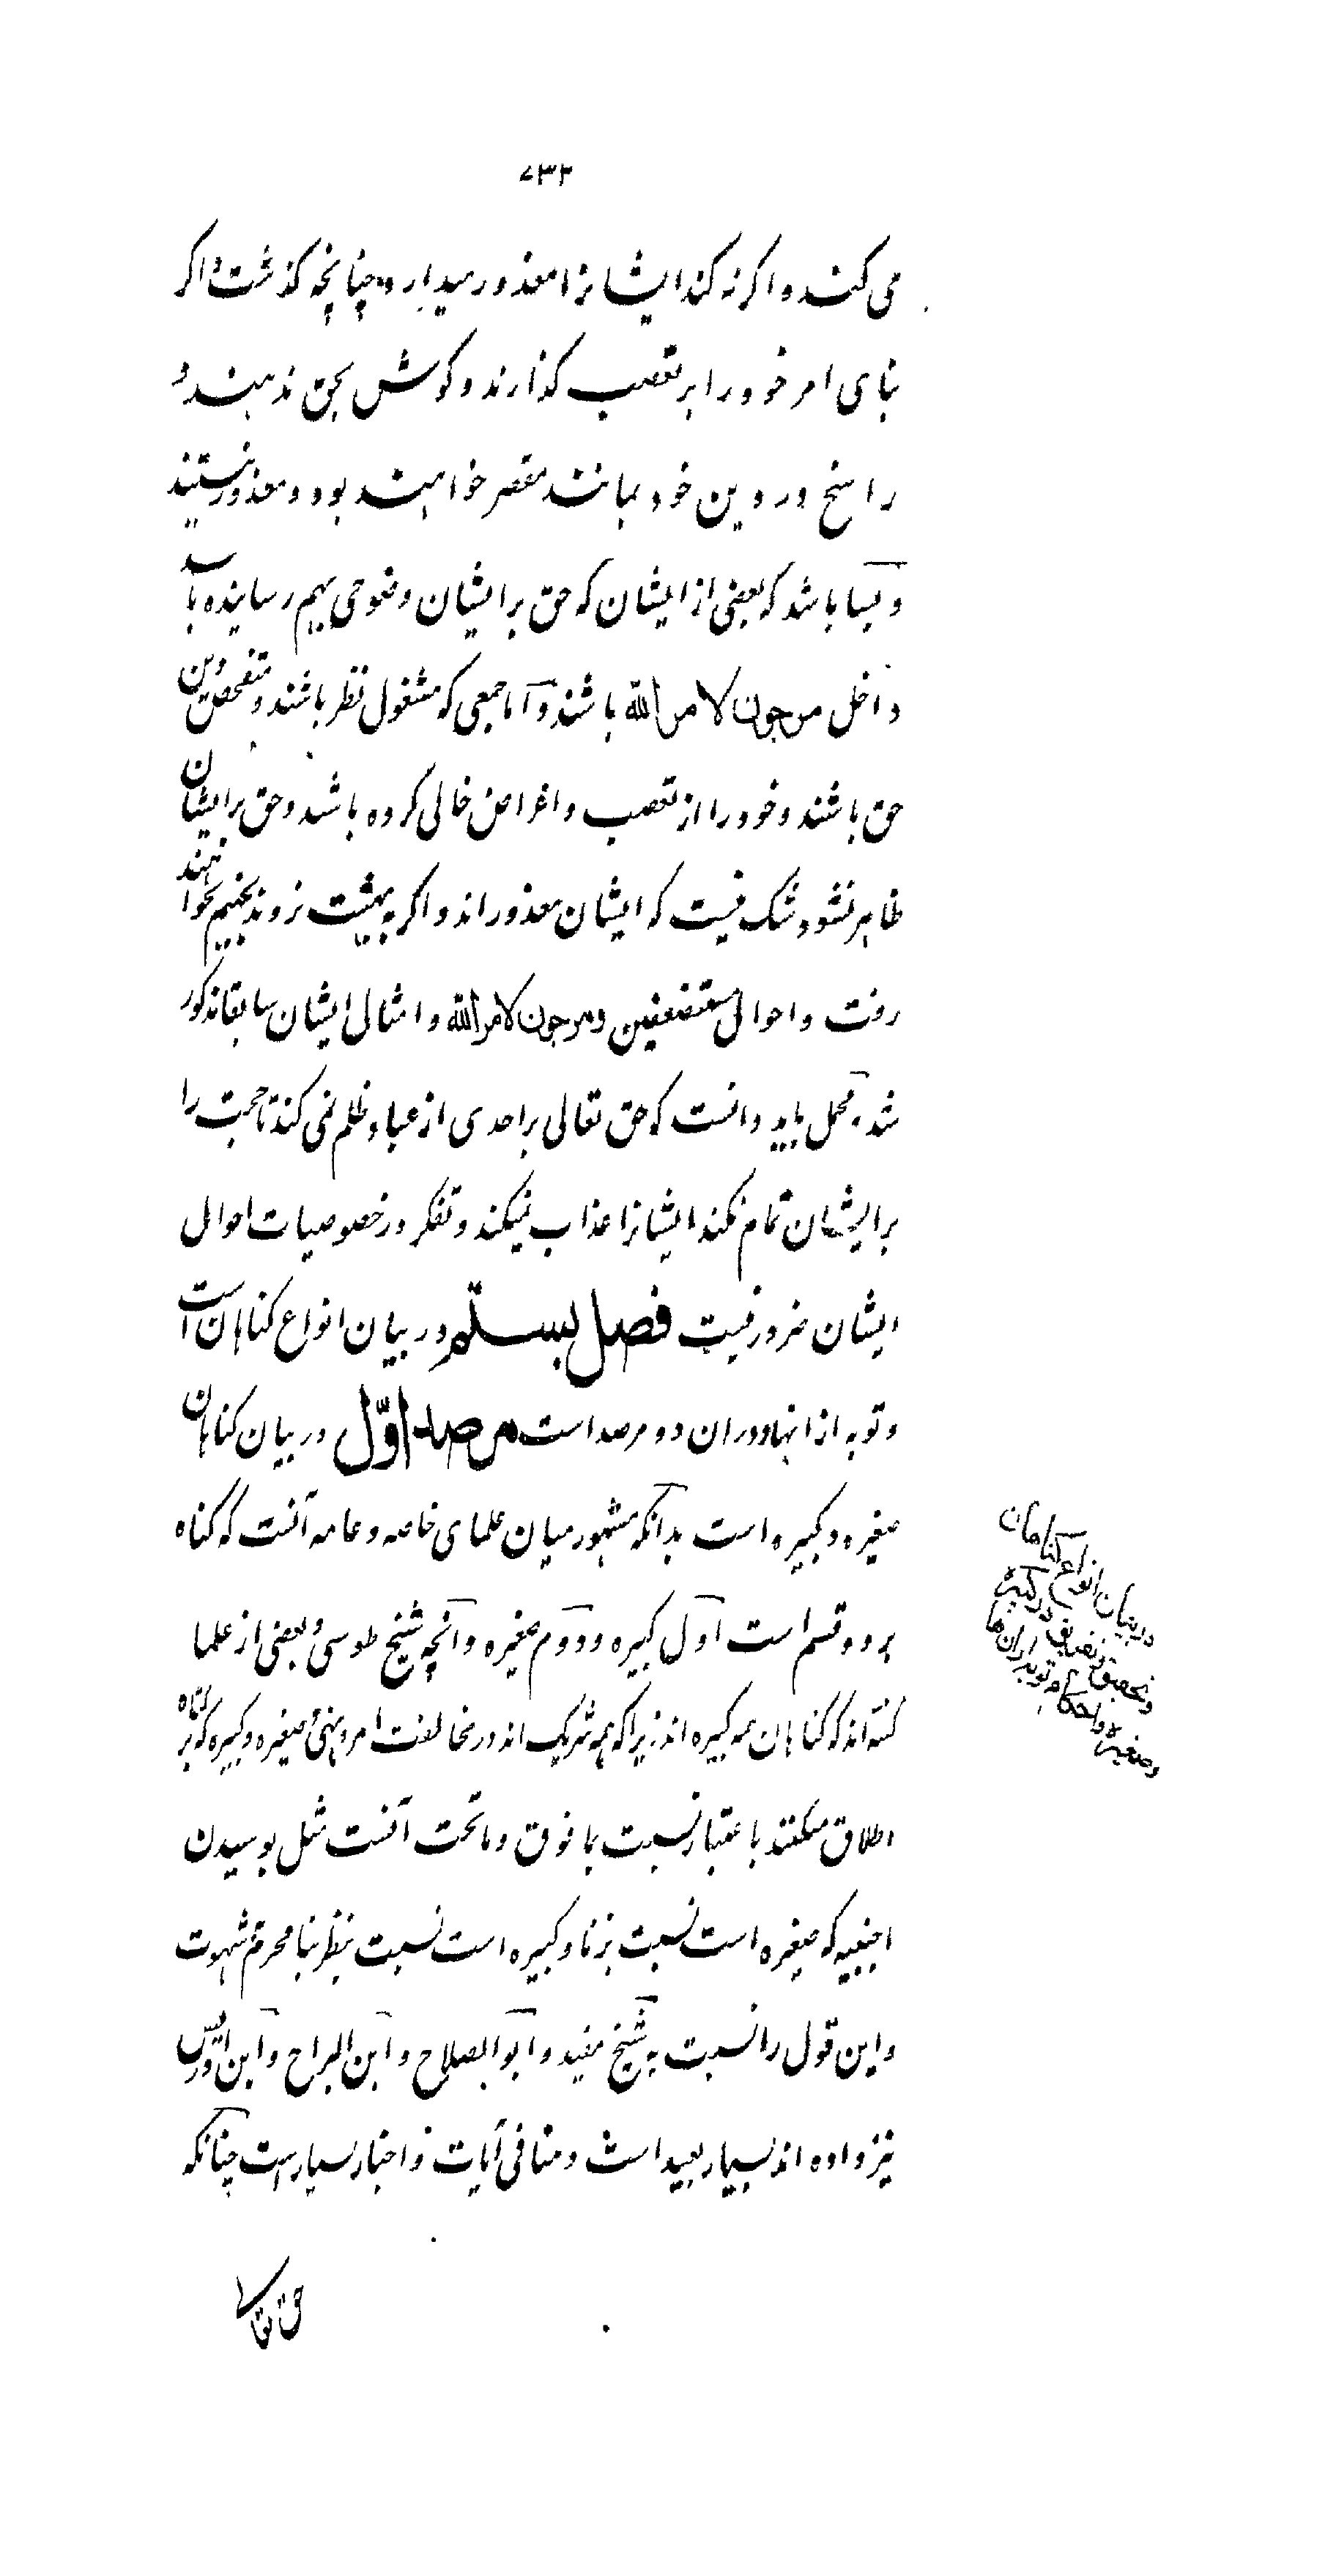 ۷۳۲
می کند و اکر نه کند ایشانرا معذور میدارد چنانچه کذشت و اکر
بنای امر خود را بر تعصب کذارند و کوش بحق ندهند و
راسخ در دین خود بمانند مقصر خواهند بود و معذور نیستند
و بسا باشد که بعضی از ایشان که حق بر ایشان وضوحی بهم رسانیده باشد
داخل مرجون لامر الله باشند و اما جمعی که مشغول نظر باشند و متفحص دین
حق باشند و خود را از تعصب و اغراض خالی کرده باشند و حق بر ایشان
ظاهر نشود شک نیست که ایشان معذور اند و اکر به بهشت نروند بجهنم نخواهند
رفت و احوال مستضعفین و مرجون لامر الله و امثال ایشان سابقا مذکور
شد مجمل باید دانست که حق تعالی بر احدی از عباد ظلم نمی کند تا حجت را
بر ایشان تمام نکند ایشانرا عذاب نمیکند و تفکر در خصوصیات احوال
ایشان ضرور نیست فصل بیستم در بیان انواع کناهان است
و توبه از انها و در ان دو مرصد است مرصد اوّل در بیان کناهان
صغیره و کبیره است بدانکه مشهور میان علمای خاصه و عامه آنست که کناه
بر دو قسم است اول کبیره و دوم صغیره و آنچه شیخ طوسی و بعضی از علما
کفته اند که کناهان همه کبیره اند زیرا که همه شریک اند در مخالفت امر و نهی و صغیره و کبیره که بر کناه
اطلاق میکنند باعتبار نسبت بما فوق و ما تحت آنست مثل بوسیدن
اجنبیه که صغیره است نسبت بزنا و کبیره است نسبت بنظر بنا محرم بشهوت
و این قول را نسبت به شیخ مفید و ابو الصلاح و ابن البراج و ابن ادریس
نیز داده اند بسیار بعید است و منافی آیات و اخبار بسیار است چنانکه
در بیان انواع کناهان
و تحقیق و تفریق در کبیره
و صغیره و احکام توبه از ان ها
حق تعالی